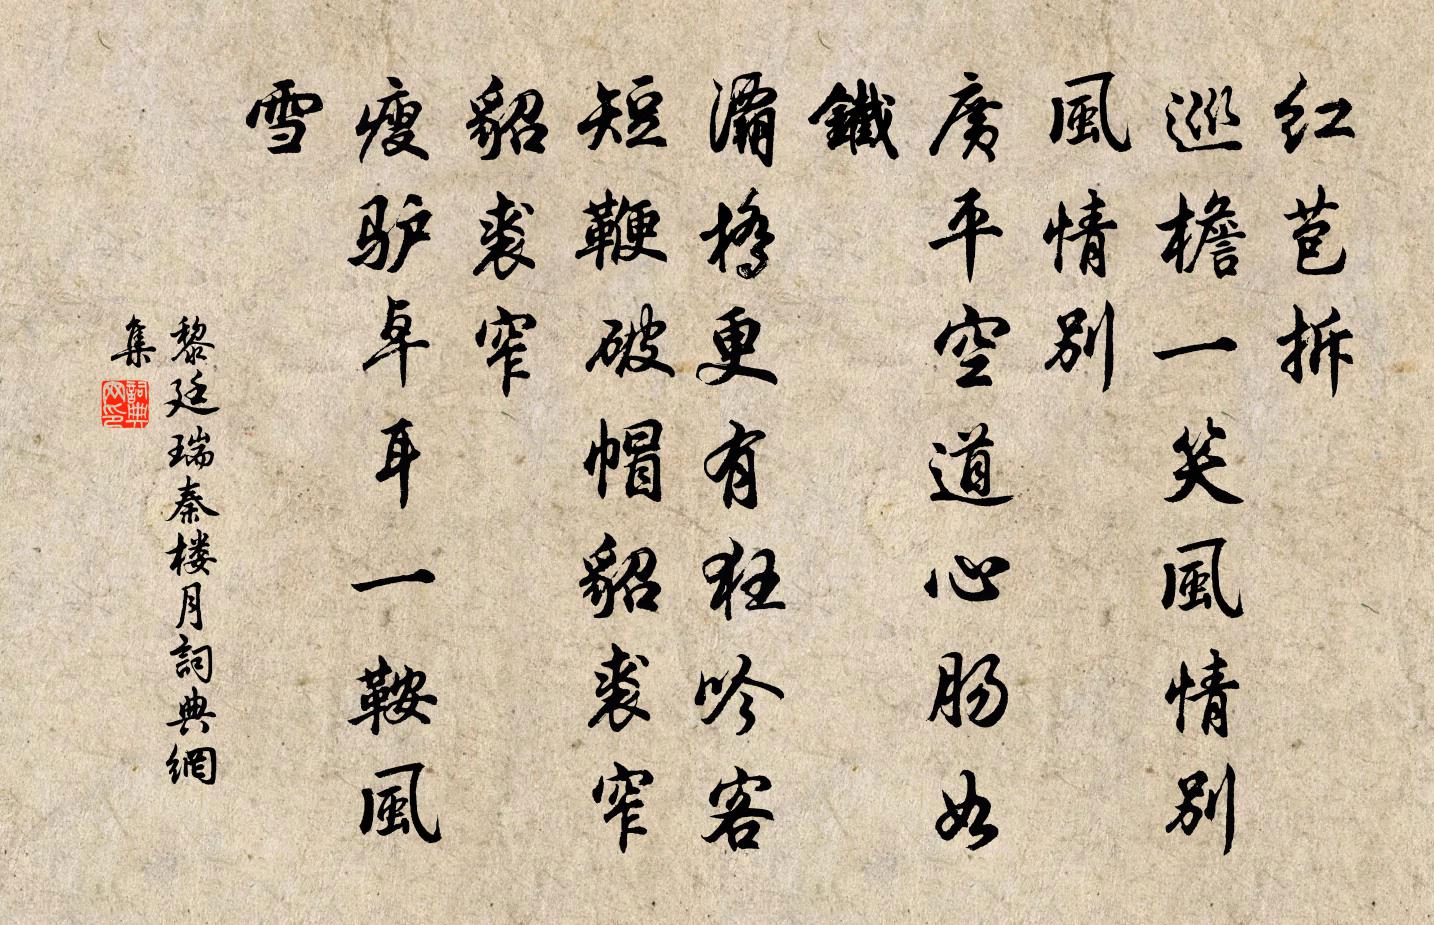 红苞拆
巡檐一笑風情別
風情別
廣平空道心肠如
鐵
灞橋更有狂吟客
短鞭破帽貂裘窄
貂裘窄
瘦驴卓耳一鞍風
雪
黎廷瑞秦楼月詞典網
集
詞典
网印